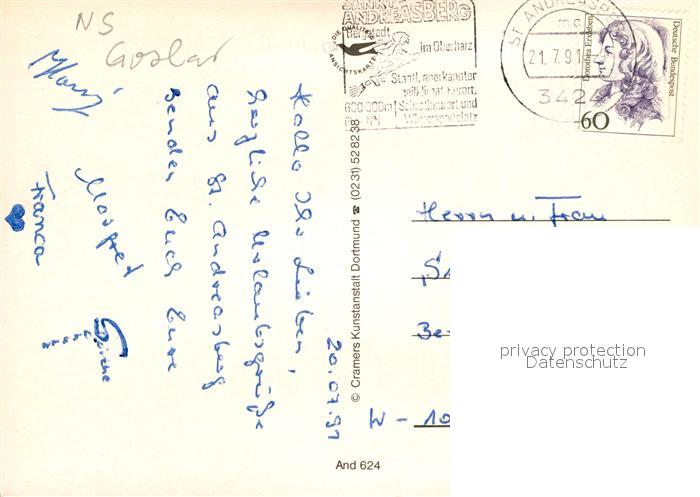 NS
Goslar
SANKT
ANDREASBERG
Bergstadt
im Oberharz
DIE QUALITÄTS
ANSICHTSKARTE
Staatl. anerkannter
heilklimat. Kurort,
600-900m Schrothkurort und
ü. NN Wintersportplatz
ST ANDREASB
mc
21.7.91
342
Dorothea Erxleben
Deutsche Bundespost
60
20.07.91
Hallo Ihr Lieben,
herzliche Urlaubsgrüße
aus St. Andreasberg
senden Euch Eure
Margret
Franca
© Cramers Kunstanstalt Dortmund ☎ (0231) 528238
And 624
Herrn u. Frau
Be
W - 10
privacy protection
Datenschutz